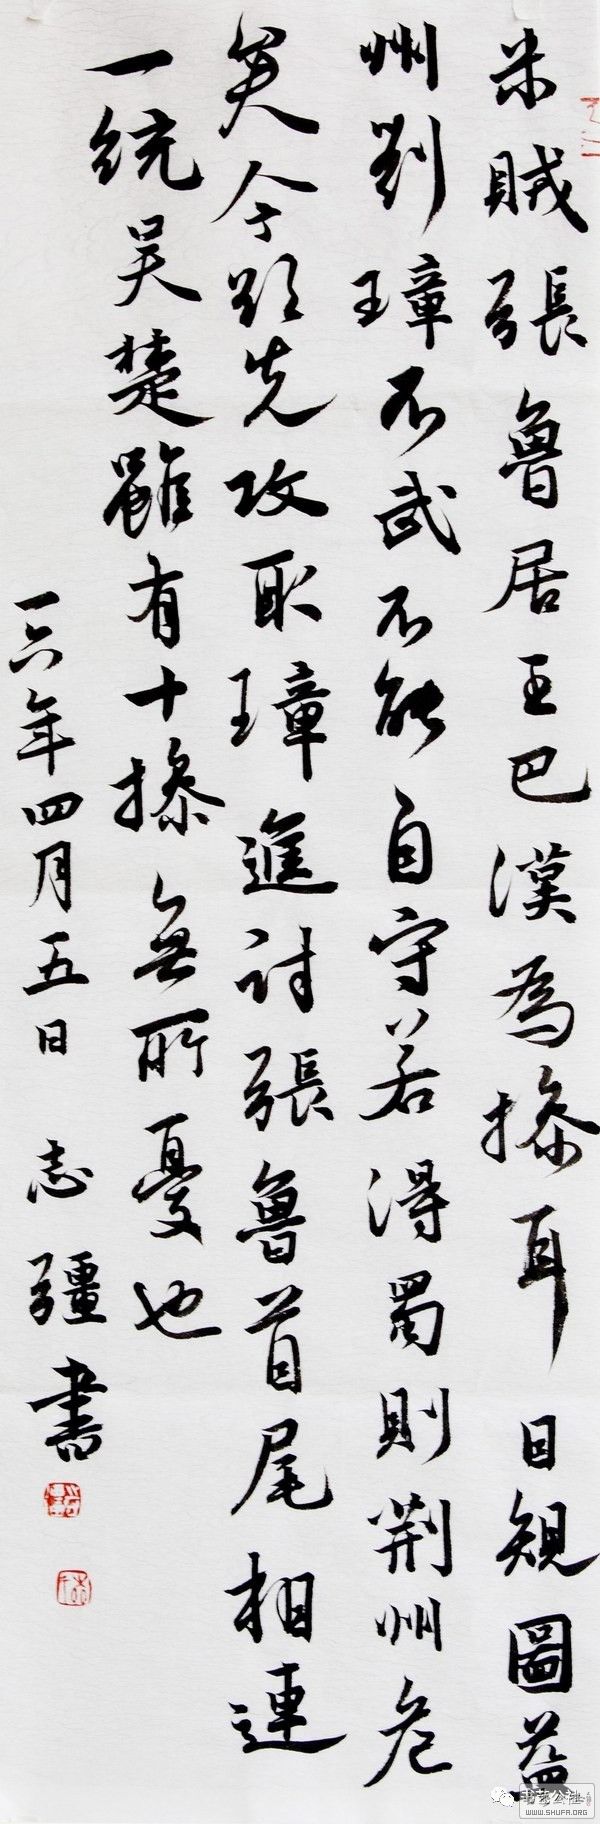 米賊張魯居王巴漢為操耳目規圖益
州劉璋不武不能自守若得蜀則荆州危
矣今欲先攻取璋進討張魯首尾相連
一統吴楚雖有十操無所憂也
一六年四月五日 志疆書
WWW.SHUFA.ORG